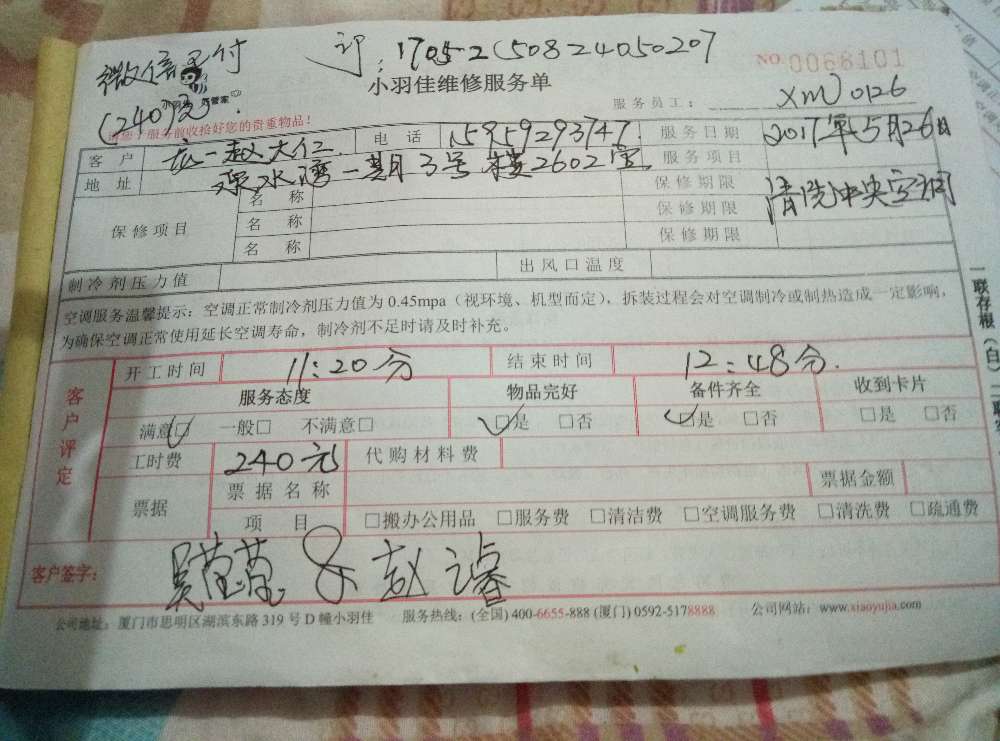 微信支付
(240元)
订:1705-2150824050207
小羽佳维修服务单
NO.0066101
服务员工: XM0126
服务前收拾好您的贵重物品!
客户 赵大仁 电话 15959293747 服务日期 2017年5月26日
地址 水湾一期3号楼2602室 服务项目 清洗中央空调
保修项目
名称 保修期限
名称 保修期限
名称 保修期限
制冷剂压力值 出风口温度
空调服务温馨提示:空调正常制冷剂压力值为0.45mpa(视环境、机型而定),拆装过程会对空调制冷或制热造成一定影响,
为确保空调正常使用延长空调寿命,制冷剂不足时请及时补充。
客户评定
开工时间 11:20分 结束时间 12:48分.
服务态度 物品完好 备件齐全 收到卡片
满意□ 一般□ 不满意□ □是 □否 □是 □否 □是 □否
工时费 240元 代购材料费
票据 票据名称 票据金额
项目 □搬办公用品 □服务费 □清洁费 □空调服务费 □清洗费 □疏通费
客户签字: 赵
公司地址:厦门市思明区湖滨东路319号D幢小羽佳 服务热线:(全国)400-6655-888(厦门)0592-5178888 公司网站:www.xiaoyujia.com
一联存根(白)